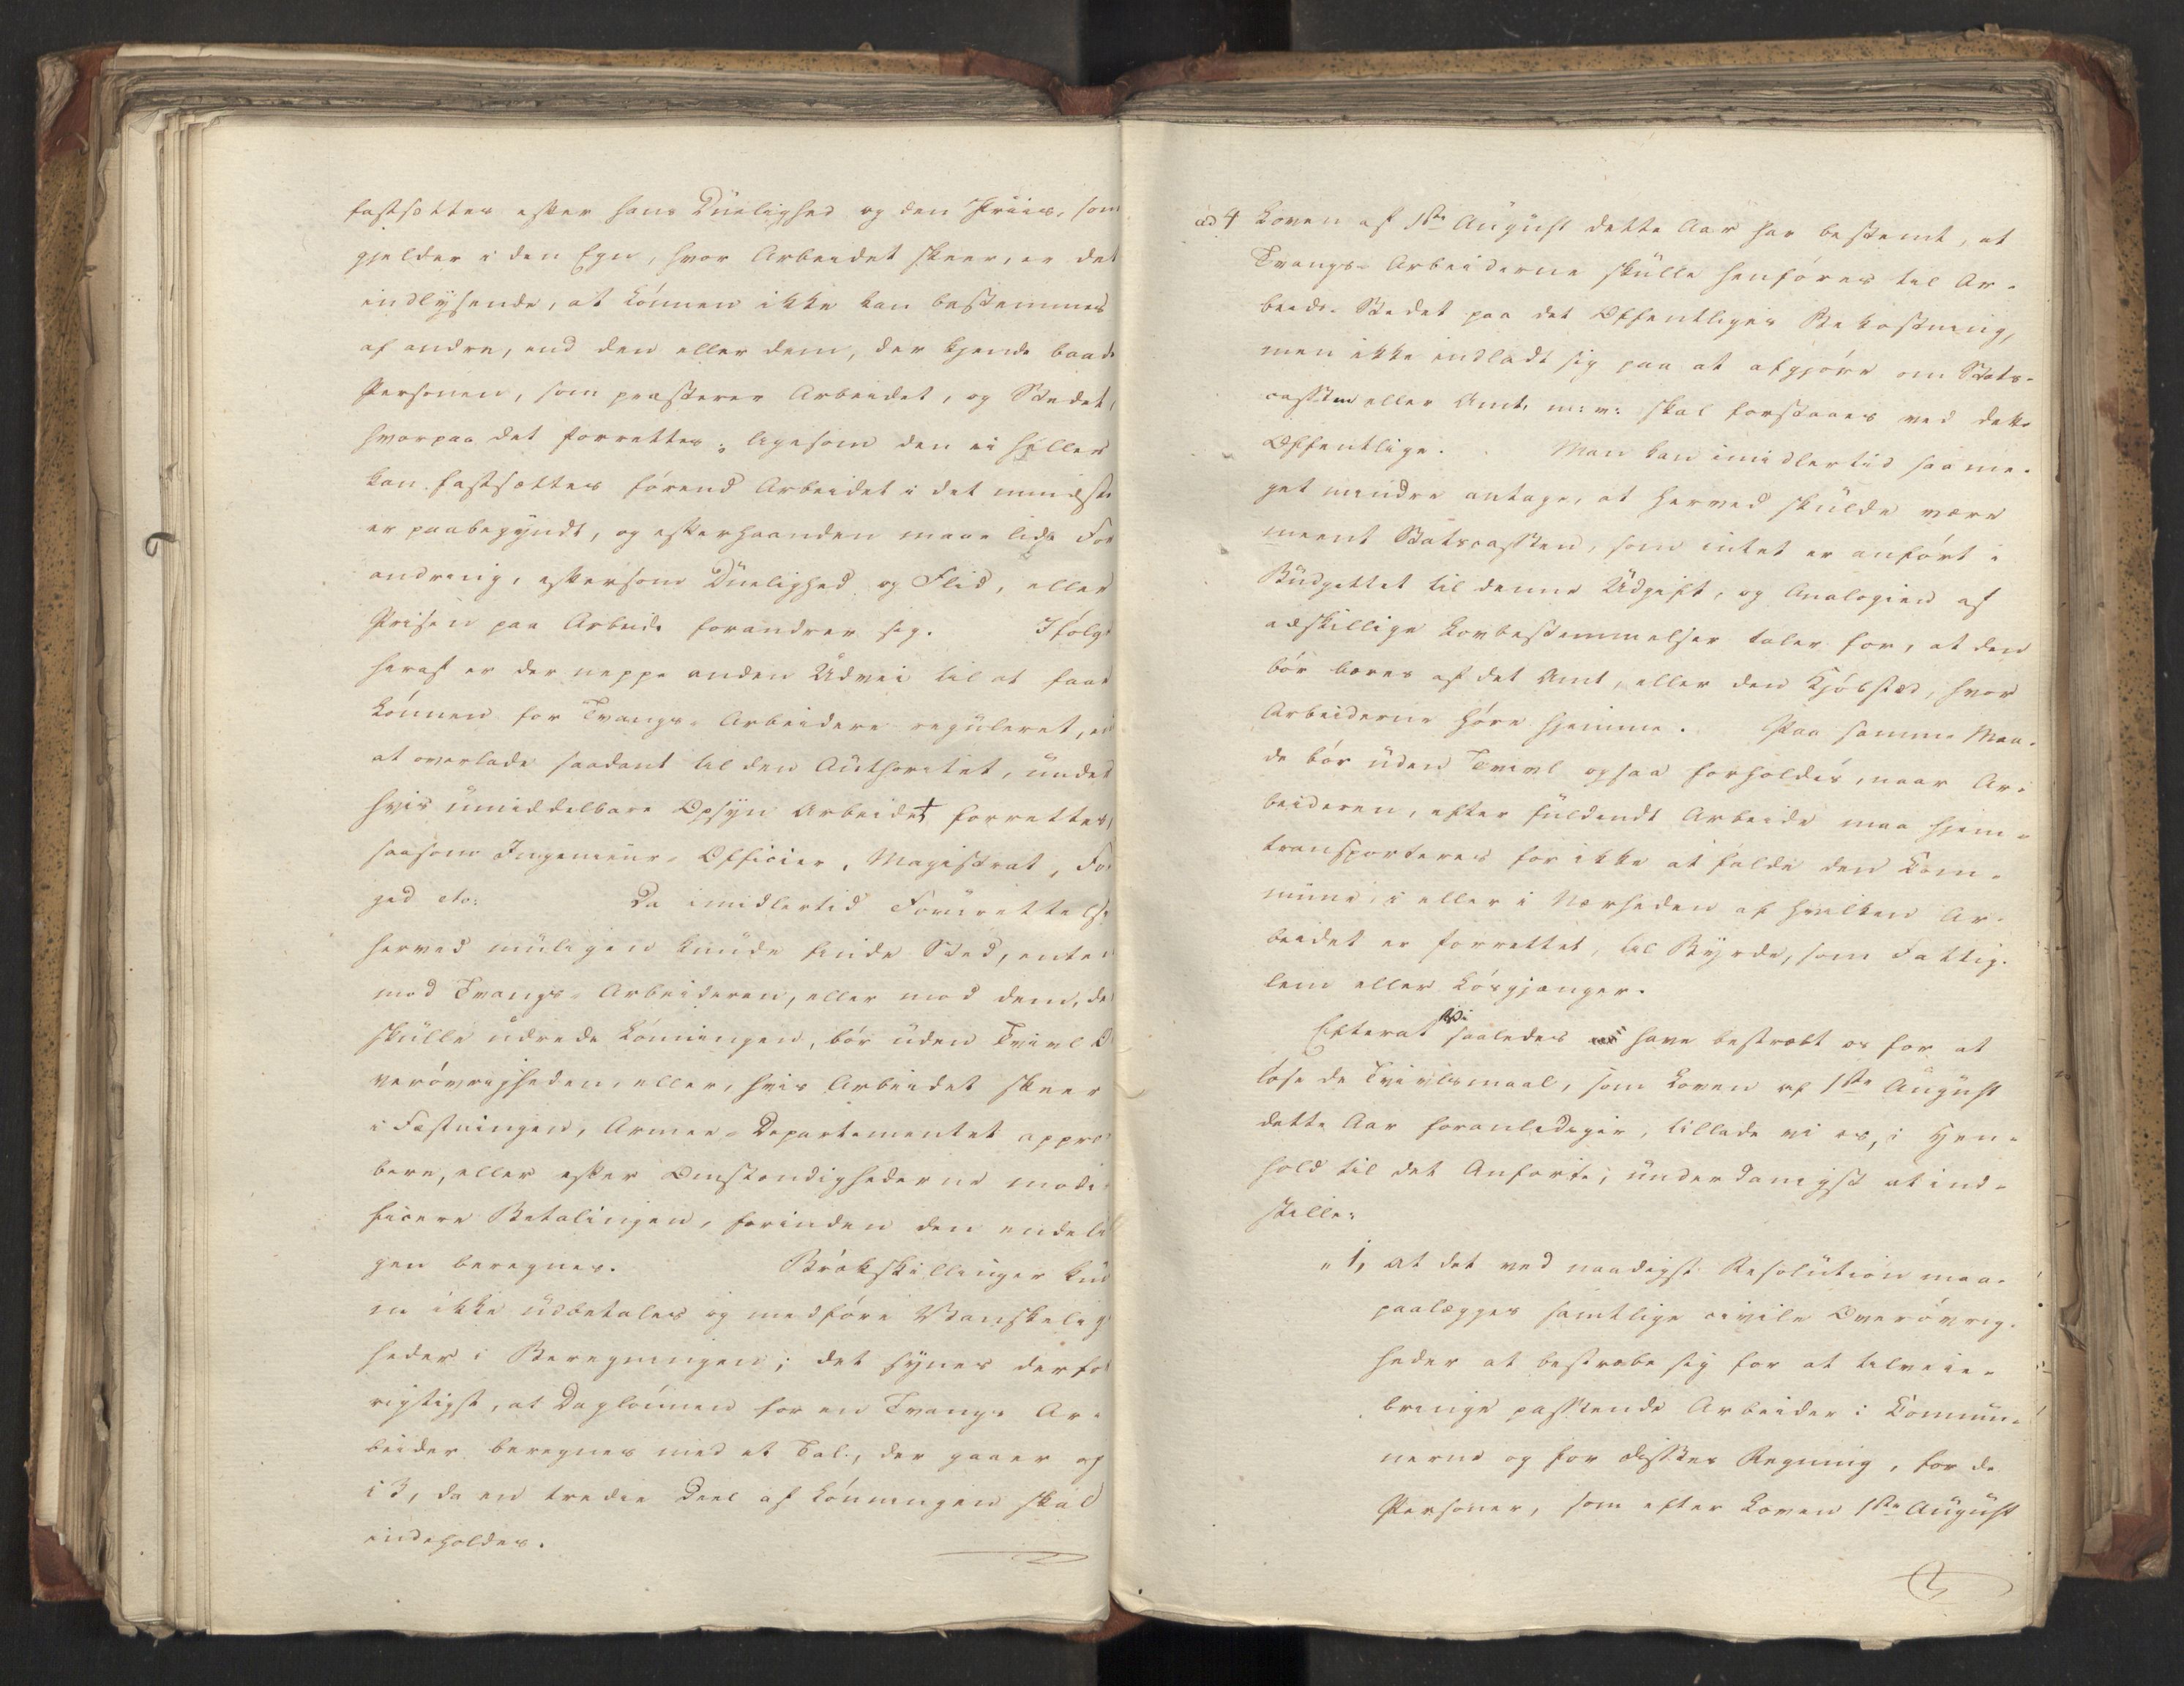 fastsættes efter hans Duelighed og den Priis, som
gjelder i den Egn, hvor Arbeidet skeer, er det
indlysende, at Lønnen ikke kan bestemmes
af andre, end den eller dem, der kjende baade
Personen, som præsterer Arbeidet, og Stedet,
hvorpaa det forrettes; ligesom den ei heller
kan fastsættes førend Arbeidet i det mindste
er paabegyndt, og efterhaanden maae lide For
andring, eftersom Duelighed og Flid, eller
Prisen paa Arbeide forandrer sig. Ifølge
heraf er der neppe anden Udvei til at faae
Lønnen for Tvangs-Arbeidere reguleret, end
at overlade saadant til den Authoritet, under
hvis umiddelbare Opsyn Arbeidet forrettes,
saasom Ingenieur-Officier, Magistrat, Fo-
ged etc: Da imidlertid Forurettelse
herved muligen kunde finde Sted, enten
mod Tvangs-Arbeideren, eller mod dem, der
skulle udrede Lønningen, bør uden Tvivl O-
verøvrigheden, eller, hvis Arbeidet skeer
i Fæstningen, Armee-Departementet appro-
bere, eller efter Omstændighederne modi-
ficere Betalingen, forinden den endeli-
gen beregnes. Brøkskillinger kun-
ne ikke udbetales og medføre Vanskelig-
heder i Beregningen; det synes derfor
rigtigst, at Daglønnen for en Tvangs Ar-
beider beregnes med et Tal, der gaaer op
i 3, da en tredie Deel af Lønningen skal
indeholdes.
ad 4 Loven af 1ste August dette Aar har bestemt, at
Tvangs-Arbeiderne skulle henføres til Ar-
beids-Stedet paa det Offentliges Bekostning,
men ikke indladt sig paa at afgjøre om Stats-
cassen eller Amt, m: v: skal forstaaes ved dette
Offentlige. Man kan imidlertid saa me-
get mindre antage, at herved skulde være
meent Statscassen, som intet er anført i
Budgettet til denne Udgift, og Analogien af
adskillige Lovbestemmelser taler for, at den
bør bæres af det Amt, eller den Kjøbstæd, hvor
Arbeiderne høre hjemme. Paa samme Maa-
de bør uden Tvivl ogsaa forholdes, naar Ar-
beideren, efter fuldendt Arbeide maa hjem-
transporteres for ikke at falde den Com-
mune, i eller i Nærheden af hvilken Ar-
beidet er forrettet, til Byrde, som Fattig-
lem eller Løsgjænger.
Efterat Vi saaledes have bestræbt os for at
løse de Tvivlsmaal, som Loven af 1ste August
dette Aar foranlediger, tillade vi os, i Hen-
hold til det Anførte, underdanigst at ind-
stille:
„ 1, at det ved naadigst Resolution maa
paalægges samtlige civile Overøvrig-
heder at bestræbe sig for at tilveie-
bringe passende Arbeider i Commu-
nerne og for disses Regning, for de
Personer, som efter Loven 1ste August